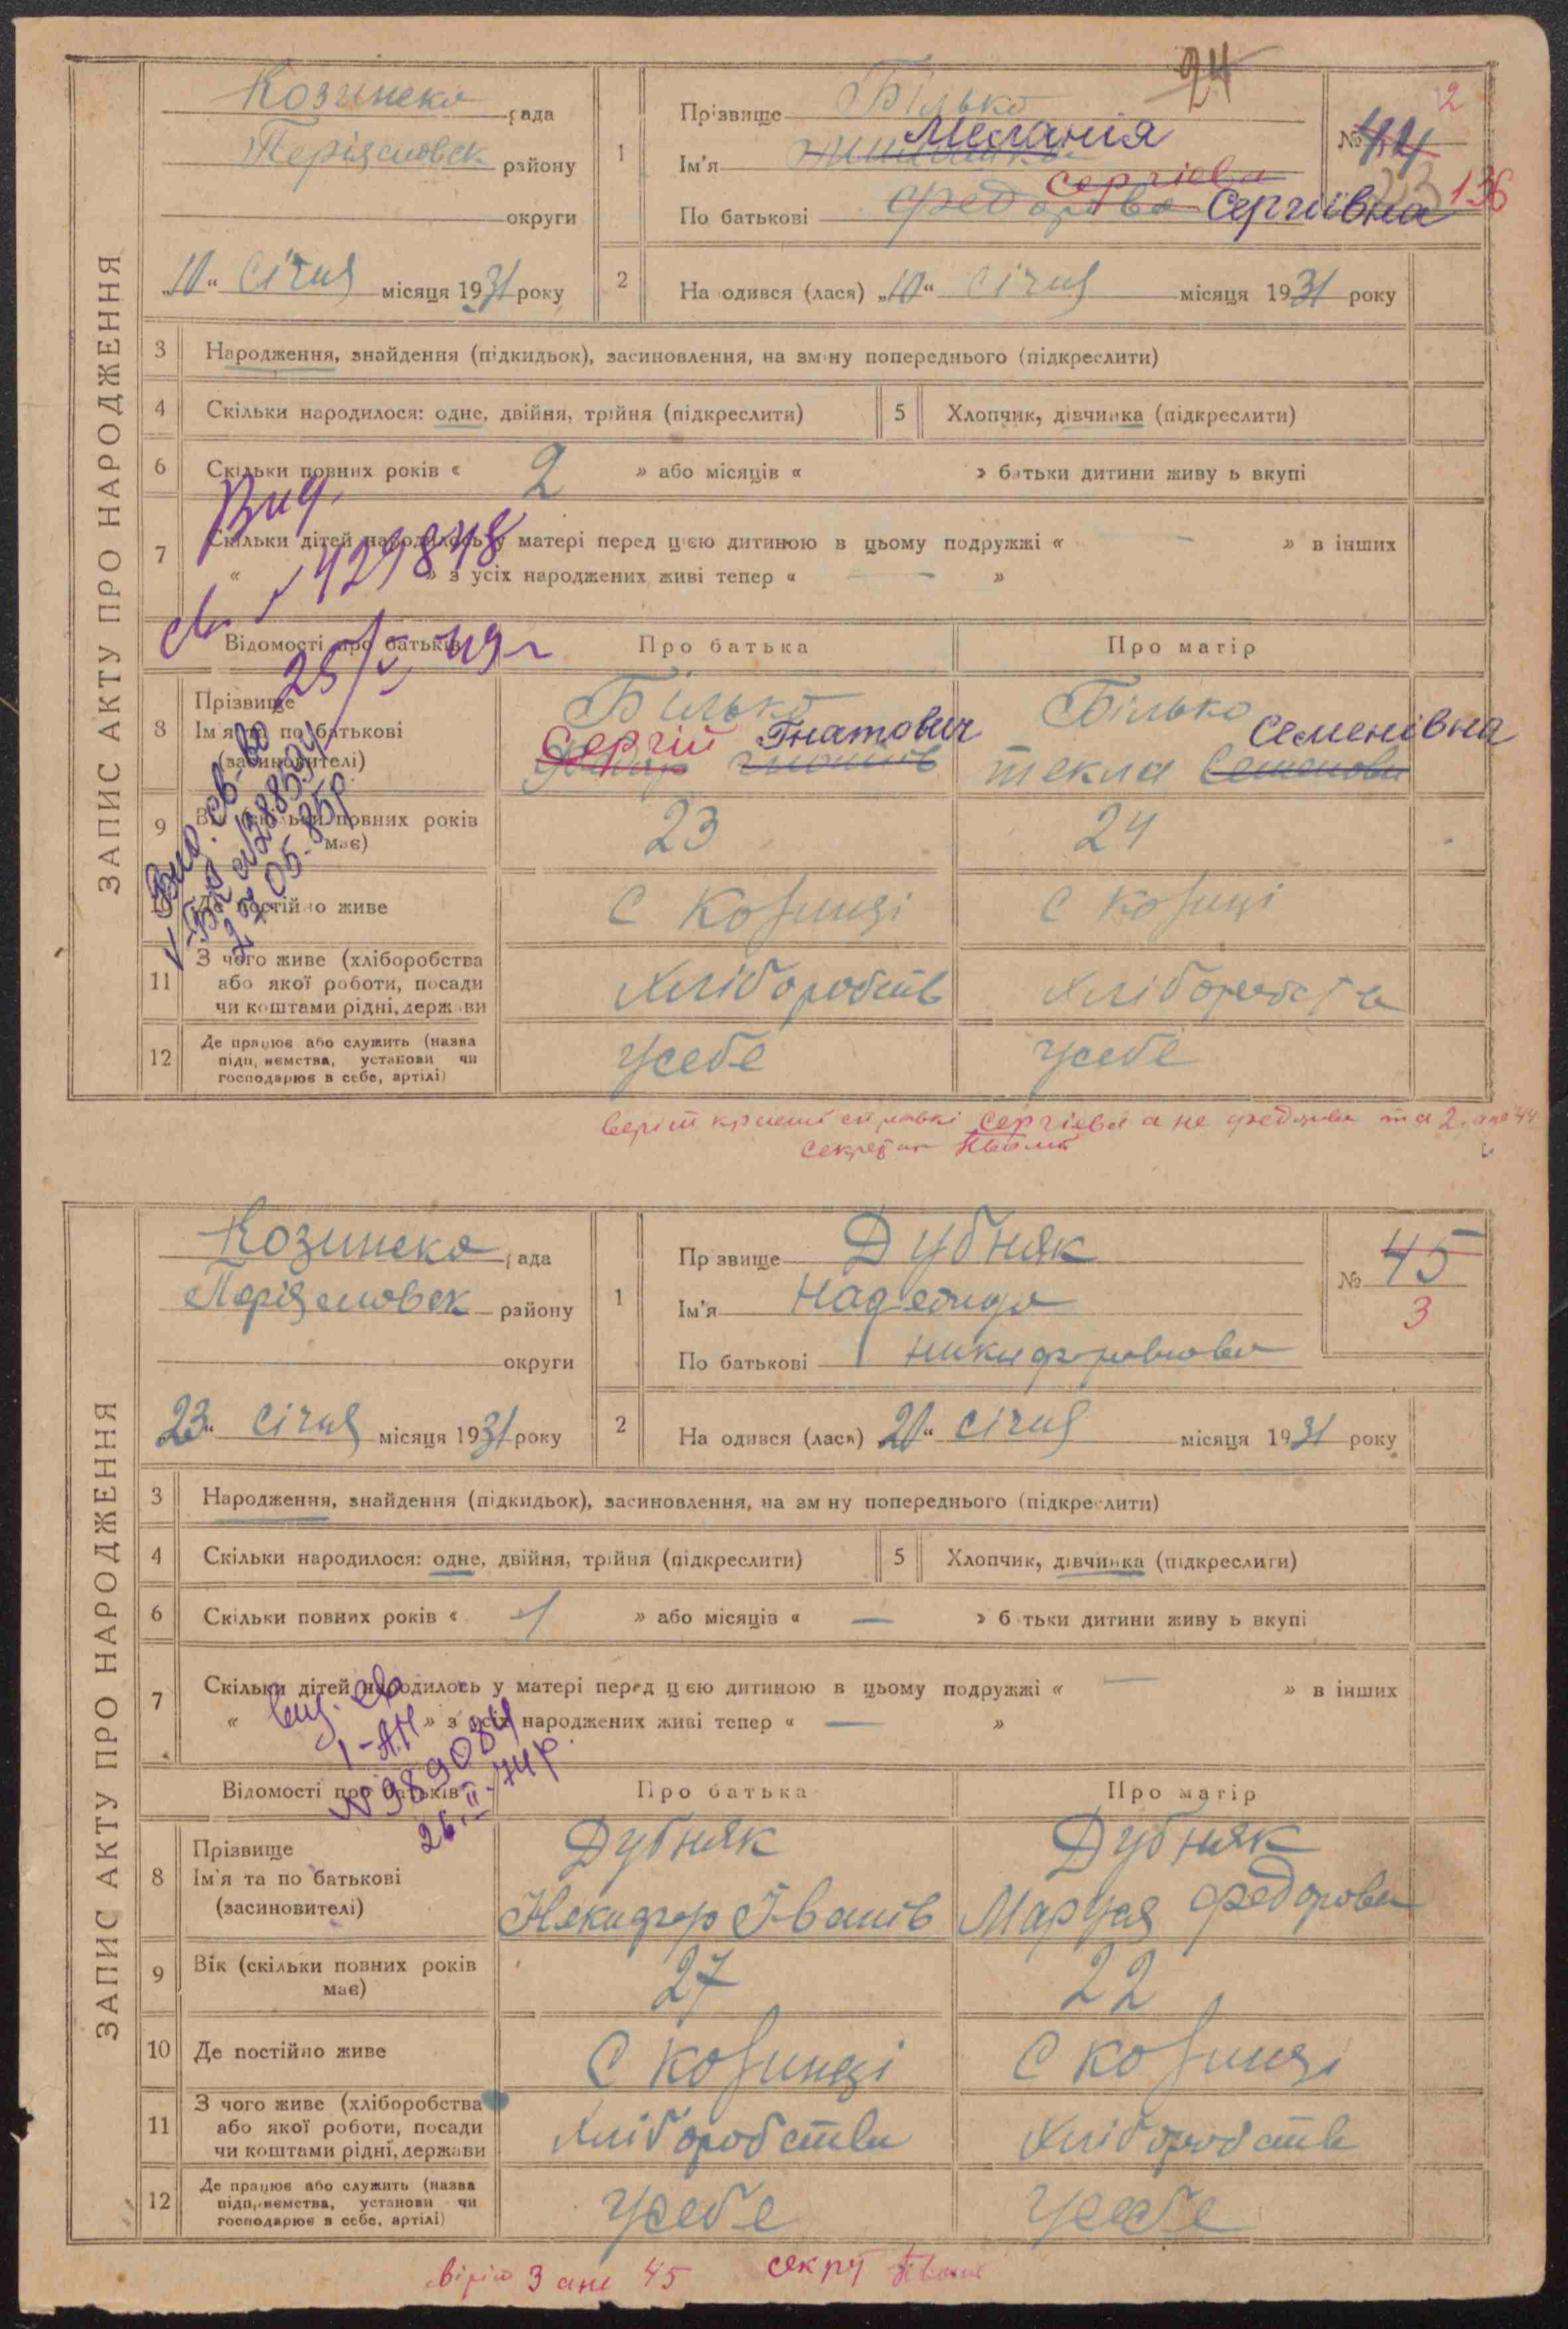 ЗАПИС АКТУ ПРО НАРОДЖЕННЯ
24
Козинско рада
Періяславськ району
округи
"10" Січня місяця 1931 року
1 Прізвище Білько
Ім'я Меланія
По батькові Федорова Сергієва Сергіївна
№ 44 2
136
2 На одився (лася) "10" Січня місяця 1931 року
3 Народження, знайдення (підкидьок), засиновлення, на зміну попереднього (підкреслити)
4 Скільки народилося: одне, двійня, трійня (підкреслити)
5 Хлопчик, дівчинка (підкреслити)
6 Скільки повних років « 2 » або місяців « » батьки дитини живу ь вкупі
7 Скільки дітей народилось у матері перед цією дитиною в цьому подружжі « — » в інших
« » з усіх народжених живі тепер « — »
Вид.
429848
25/V 49 г
Відомості про батьків Про батька Про матір
8 Прізвище
Ім'я та по батькові
(засиновителі)
Білько
Сергій Гнатович
Білько
Текла Семенова Семенівна
Вид. св-во
27.05.85р.
9 Вік (скільки повних років має) 23 24
10 Де постійно живе С Козинці С Козинці
11 З чого живе (хліборобства або якої роботи, посади чи коштами рідні, держави Хліборобств Хліборобства
12 Де працює або служить (назва підприємства, установи чи господарює в себе, артілі) усебе усебе
Сергієва а не Федорова та 2 а не 44
секретар
ЗАПИС АКТУ ПРО НАРОДЖЕННЯ
Козинско рада
Періяславськ району
округи
"23" Січня місяця 1931 року
1 Прізвище Дубняк
Ім'я Надежда
По батькові
№ 45
3
2 На одився (лася) "20" Січня місяця 1931 року
3 Народження, знайдення (підкидьок), засиновлення, на зм ну попереднього (підкреслити)
4 Скільки народилося: одне, двійня, трійня (підкреслити)
5 Хлопчик, дівчинка (підкреслити)
6 Скільки повних років « 1 » або місяців « — » б тьки дитини живу ь вкупі
7 Скільки дітей народилось у матері перед цією дитиною в цьому подружжі « — » в інших
« » з усіх народжених живі тепер « — »
вид. св
I-АП
№989084
26.II.74р.
Відомості про батьків Про батька Про матір
8 Прізвище
Ім'я та по батькові
(засиновителі)
Дубняк
Никифор Іванів
Дубняк
Маруся Федорова
9 Вік (скільки повних років має) 27 22
10 Де постійно живе С Козинці С Козинці
11 З чого живе (хліборобства або якої роботи, посади чи коштами рідні, держави Хліборобства Хліборобств
12 Де працює або служить (назва підприємства, установи чи господарює в себе, артілі) усебе усебе
вірит 3 ане 45 секрт